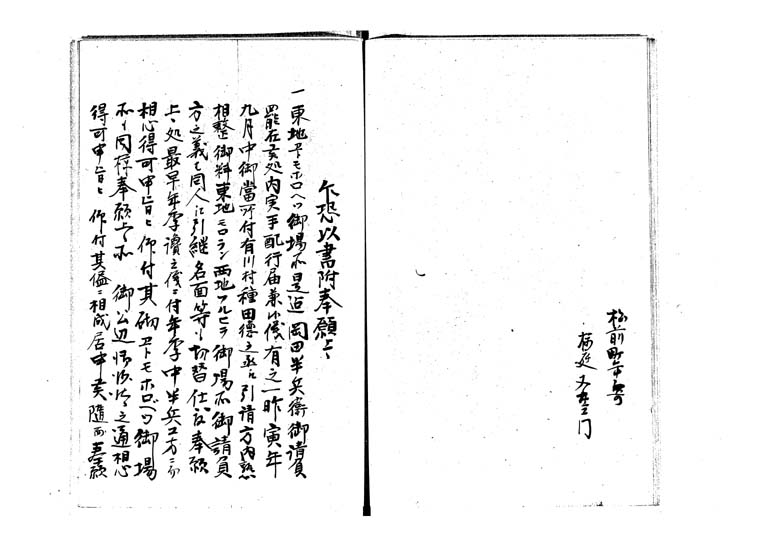 乍恐以書附奉願上
一東地ヲトモホロヘツ御場所是迄岡田半兵衛御請負
罷在候処内実手配行届兼候儀有之一昨寅年
九月中御當所付有川村種田徳之丞に引請方内熟
相整御料東地モロラン西地フルヒラ御場所御請負
方之義も同人に引継名面等も切替仕度奉願
上候処最早年季讀之儀ニ付年季中半兵エ方ニ而
相心得可申旨被仰付其砌ヲトモホロヘツ御場
所も同様奉願上候所御公辺
之通相心
得可申旨被仰付其儘ニ相成居申候随而奉願
松前町年寄
桜庭又左衛門